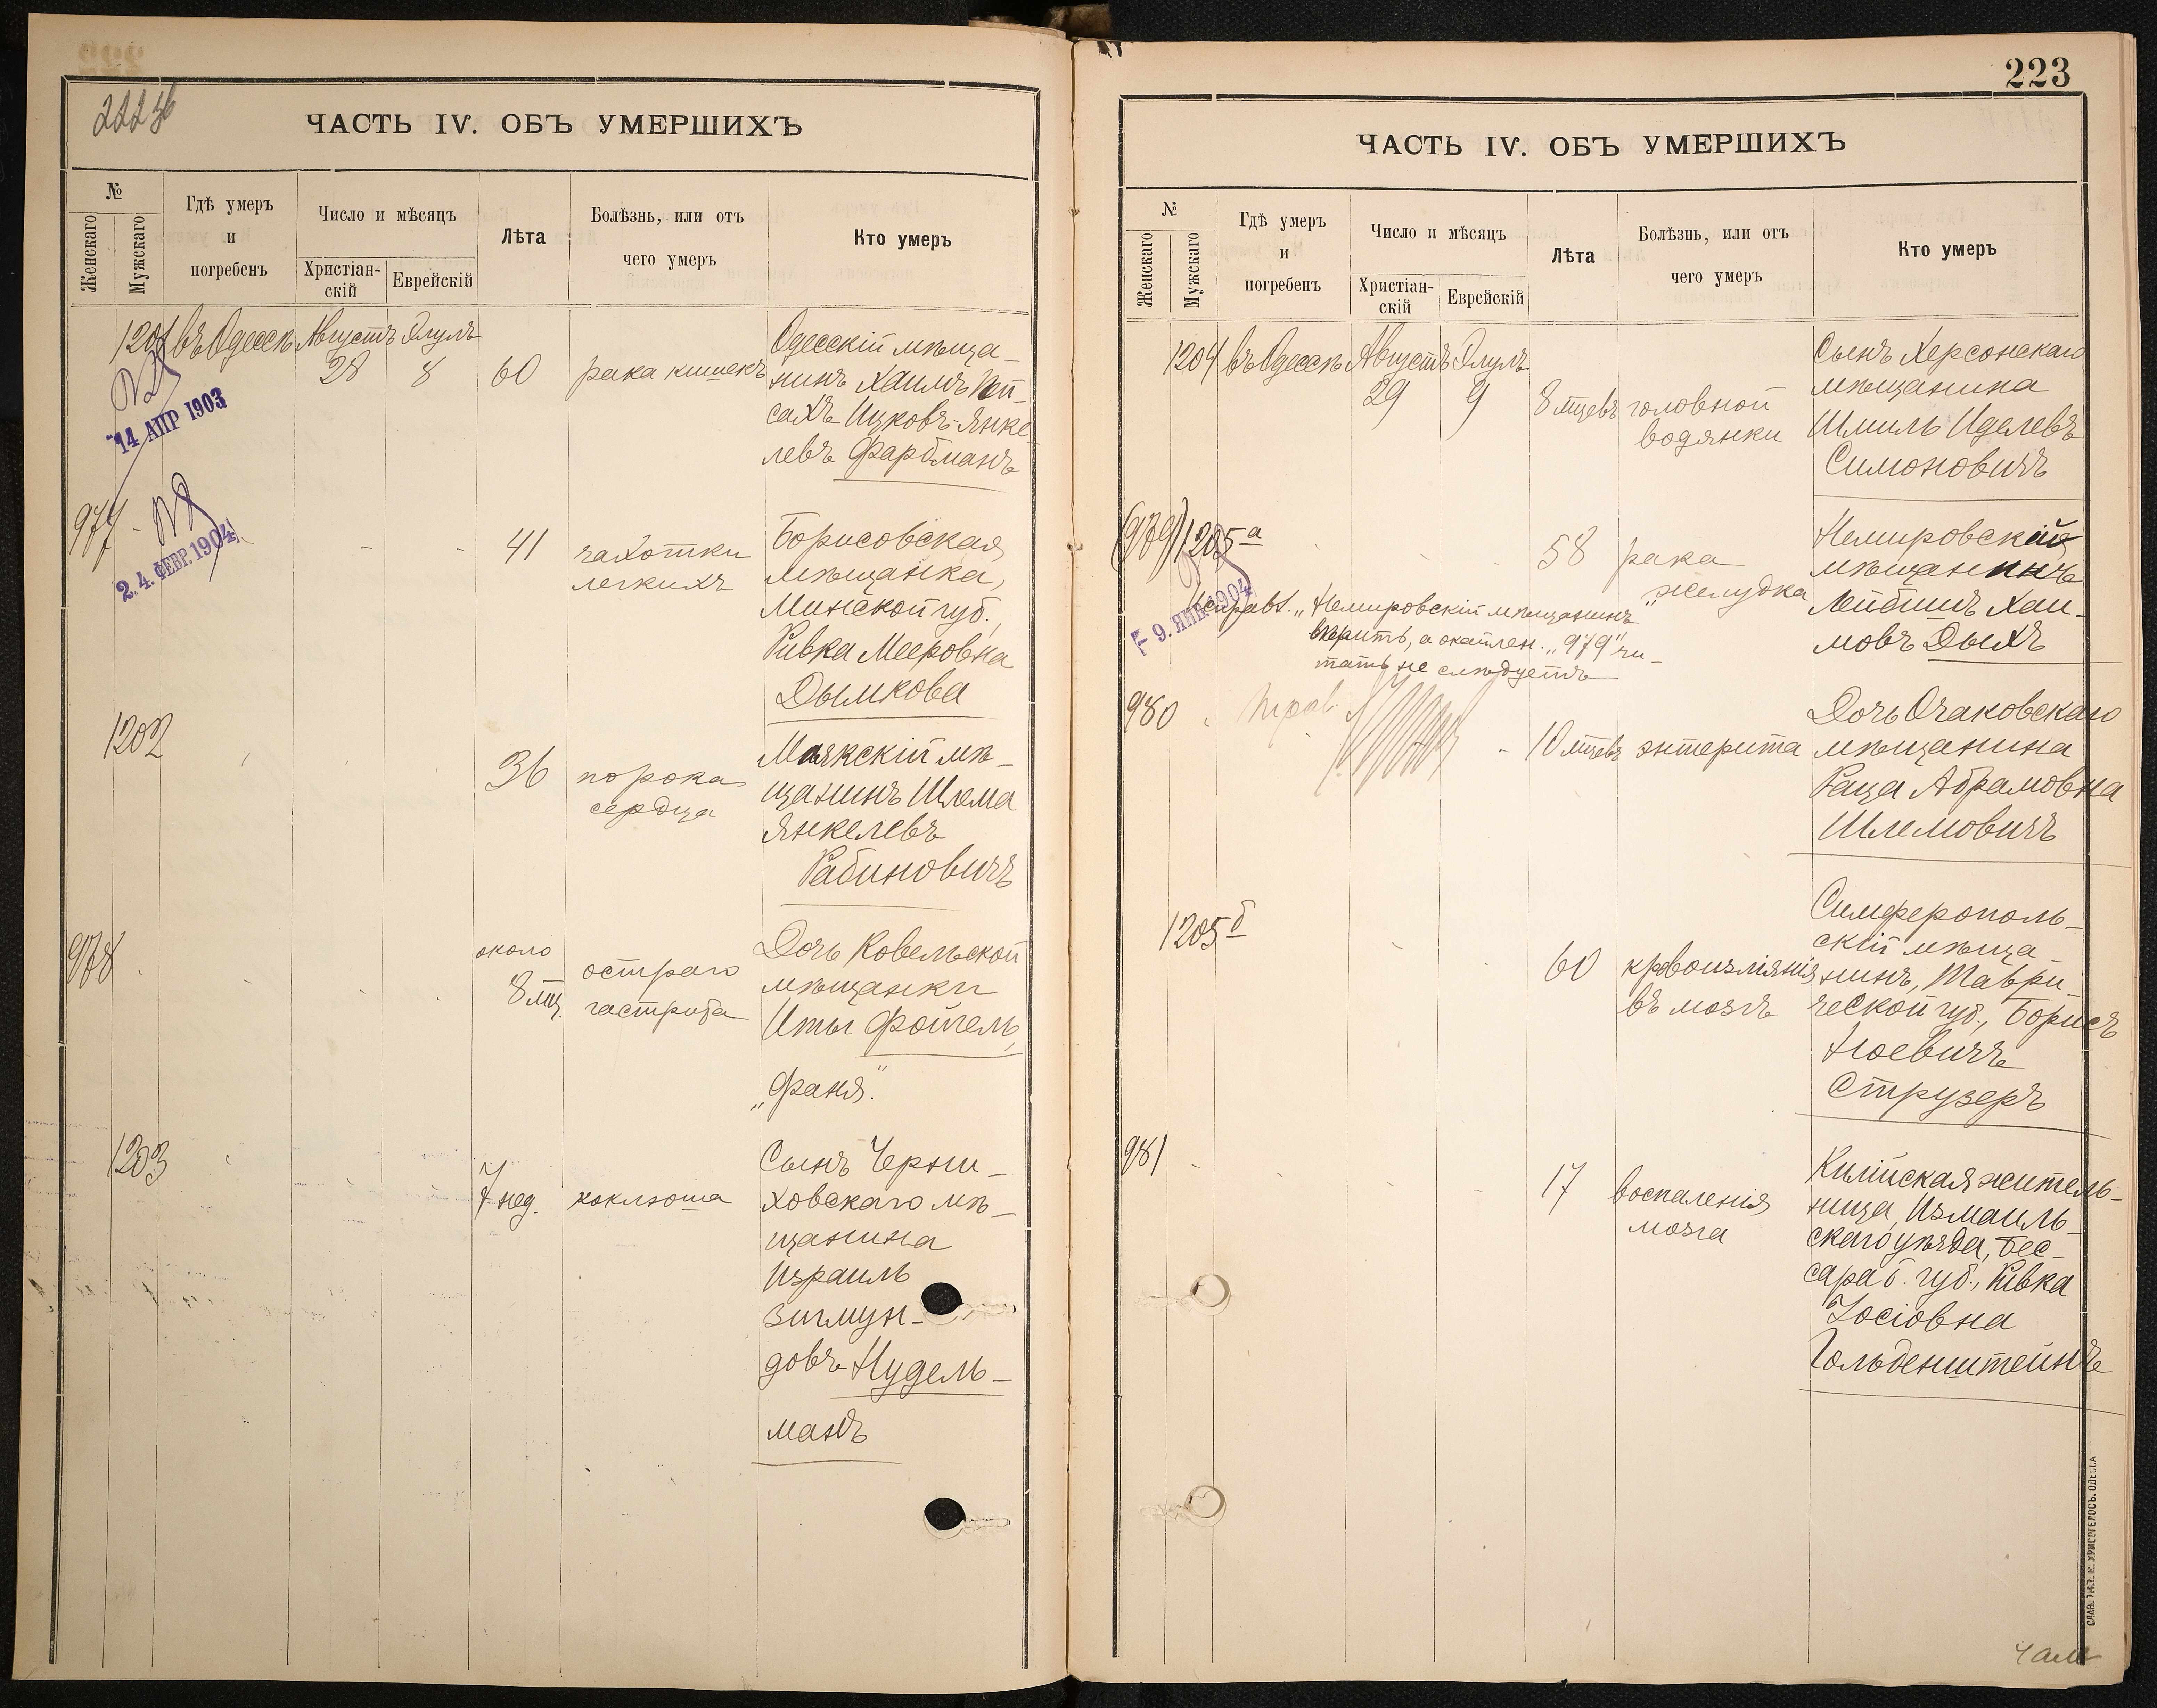 222 об
ЧАСТЬ IV. ОБЪ УМЕРШИХЪ
№
Женскаго
Мужскаго
Гдѣ умеръ
и
погребенъ
Число и мѣсяцъ
Христіан-
скій
Еврейскій
Лѣта
Болѣзнь, или отъ
чего умеръ
Кто умеръ
1201 въ Одессѣ Августъ Элулъ
28 8 60 рака кишекъ
Одесскій мѣща-
нинъ Хаимъ Пей-
сахъ Ицковъ-Янке-
левъ Фарбманъ
14 АПР 1903
977
24 ФЕВР. 1904
41 чахотки
легкихъ
Борисовская
мѣщанка,
Минской губ.,
Ривка Мееровна
Дымкова
1202
36 порока
сердца
Маякскій мѣ-
щанинъ Шлема
Янкелевъ
Рабиновичъ
978
около
8 мц. остраго
гастрита
Дочь Ковельской
мѣщанки
Иты Фойгель,
„Фаня".
1203
7 нед. коклюша
Сынъ Черни-
ховскаго мѣ-
щанина
Израиль
Зигмун-
довъ Нудель-
манъ
223
ЧАСТЬ IV. ОБЪ УМЕРШИХЪ
№
Женскаго
Мужскаго
Гдѣ умеръ
и
погребенъ
Число и мѣсяцъ
Христіан-
скій
Еврейскій
Лѣта
Болѣзнь, или отъ
чего умеръ
Кто умеръ
1204 въ Одессѣ Августъ Элулъ
29 9 8 мцевъ головной
водянки
Сынъ Херсонскаго
мѣщанина
Шмиль Иделевъ
Симоновичъ
(979) 1205 а
58 рака
желудка
Немировскій
мѣщанинъ
Лейбишъ Хаи-
мовъ Дыхъ
9. ЯНВ 1904
исправл. „Немировскій мѣщанинъ"
вѣрить, а окаймлен. „979" чи-
тать не слѣдуетъ
980
10 мцевъ энтерита
Дочь Очаковскаго
мѣщанина
Раца Абрамовна
Шлемовичъ
1205 б
60 кровоизліянія
въ мозгъ
Симферополь-
скій мѣща-
нинъ, Таври-
ческой губ., Борисъ
Ноевичъ
Струзеръ
981
17 воспаленія
мозга
Килійская житель-
ница, Измаиль-
скаго уѣзда, Бес-
сараб. губ., Ривка
Іосіовна
Гольденштейнъ